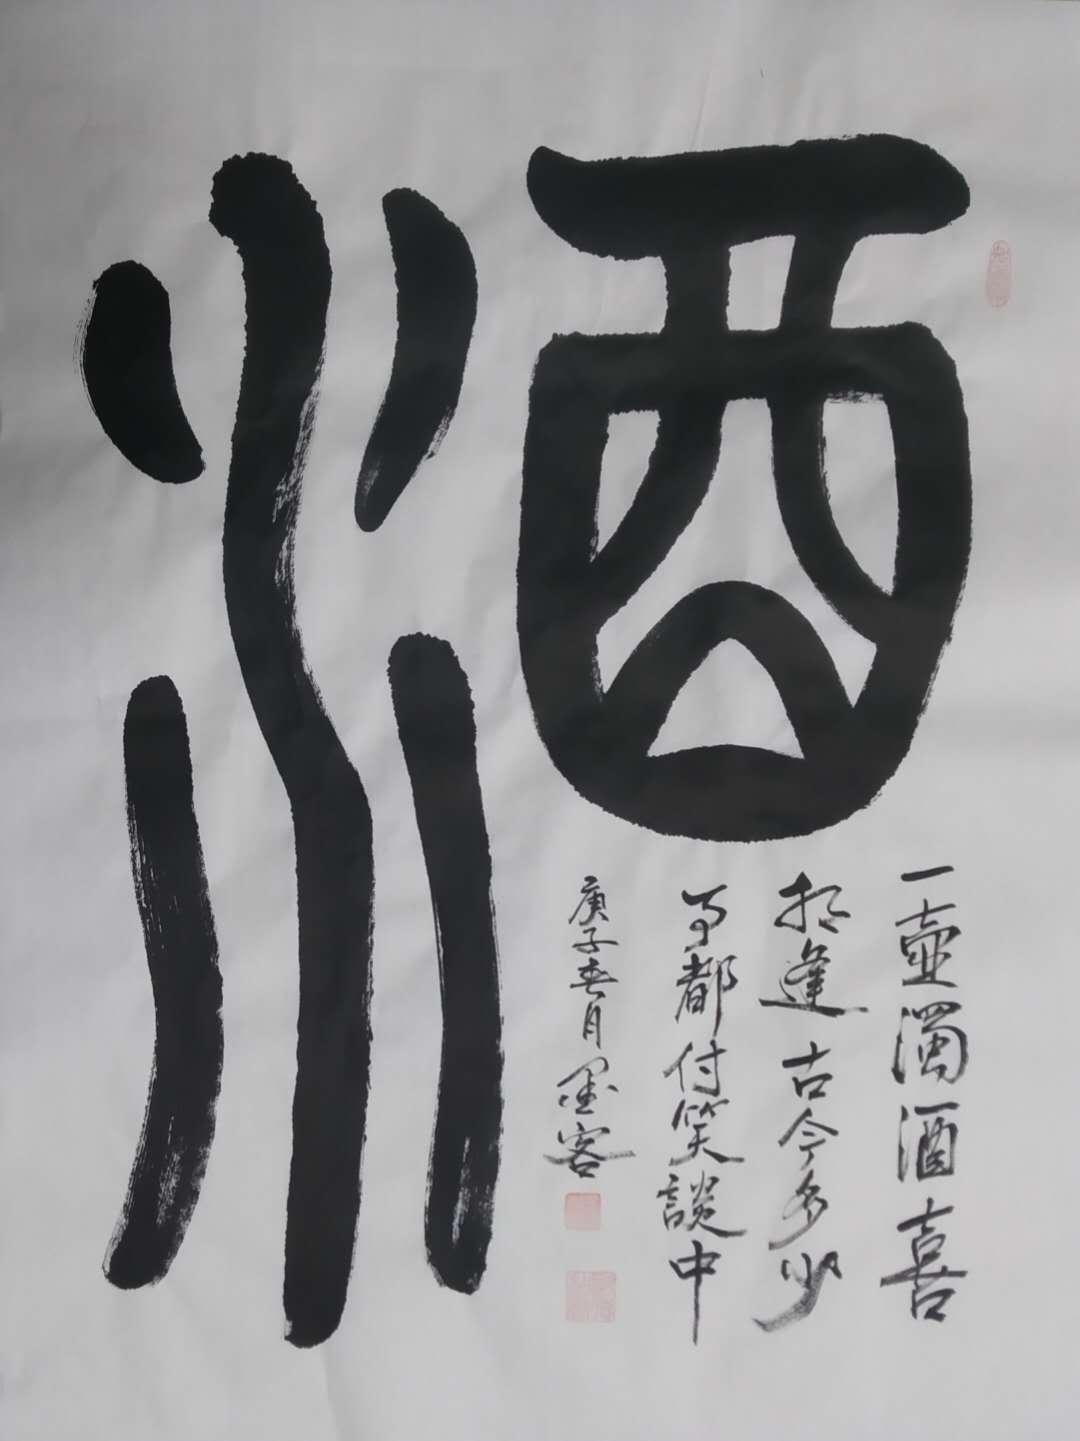 酒
一壺濁酒喜
相逢古今多少
事都付笑談中
庚子春月墨客